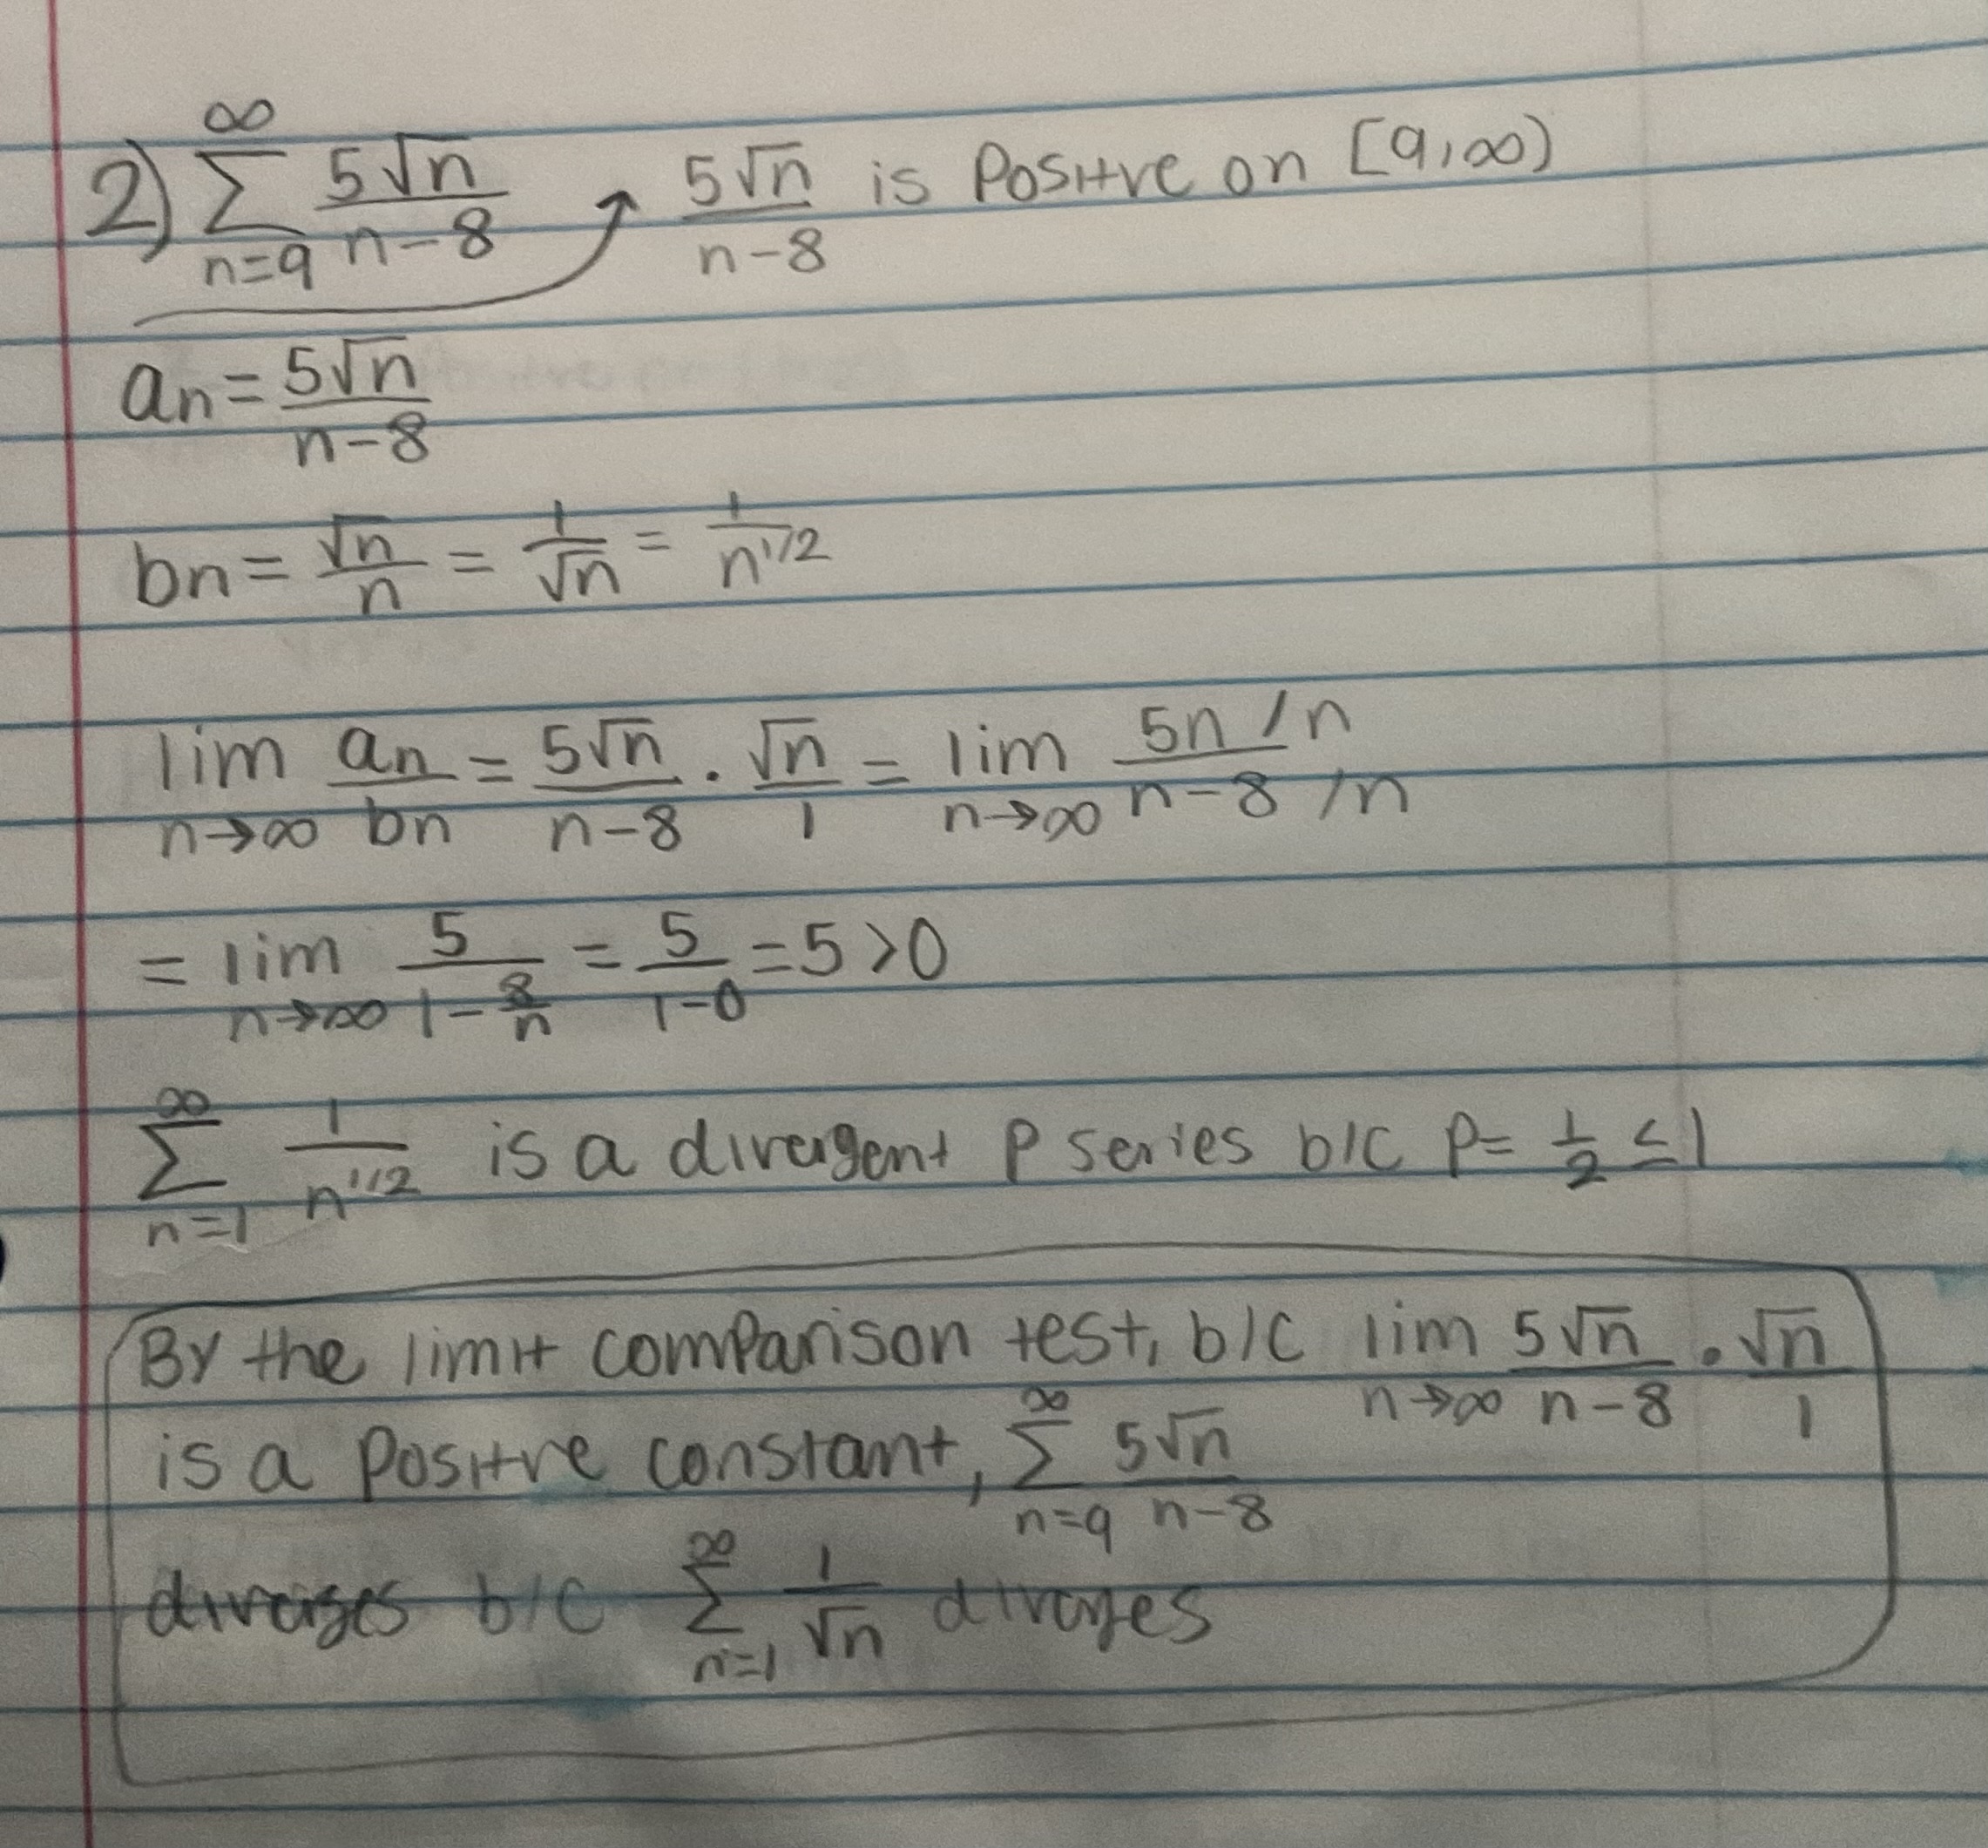 2) ∞∑n=9 5√n/(n-8) → 5√n/(n-8) is positive on [9,∞)
an = 5√n/(n-8)
bn = √n/n = 1/√n = 1/n^1/2
lim n→∞ an/bn = 5√n/(n-8) · √n/1 = lim n→∞ (5n /n)/(n-8 /n)
= lim n→∞ 5/(1-8/n) = 5/(1-0) = 5 > 0
∞∑n=1 1/n^1/2 is a divergent p series b/c p = 1/2 ≤ 1
By the limit comparison test, b/c lim n→∞ 5√n/(n-8) · √n/1
is a positive constant, ∞∑n=9 5√n/(n-8)
diverges b/c ∞∑n=1 1/√n diverges